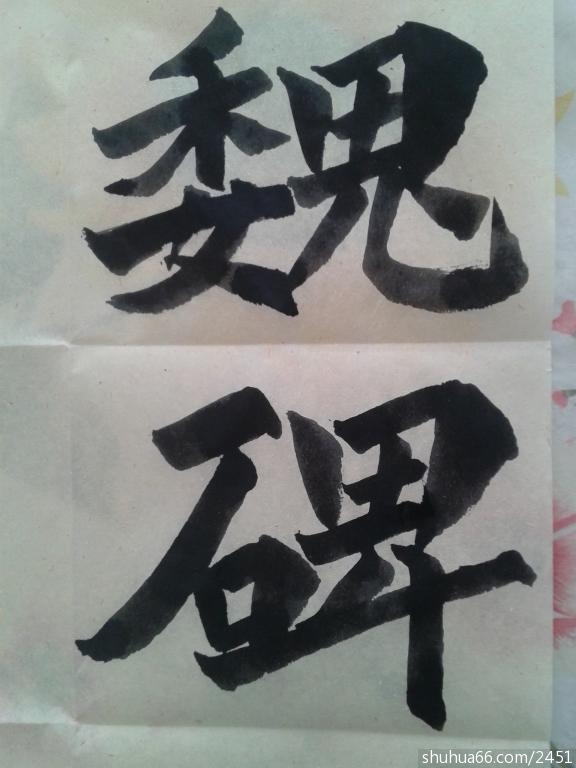 魏
碑
shuhua66.com/2451